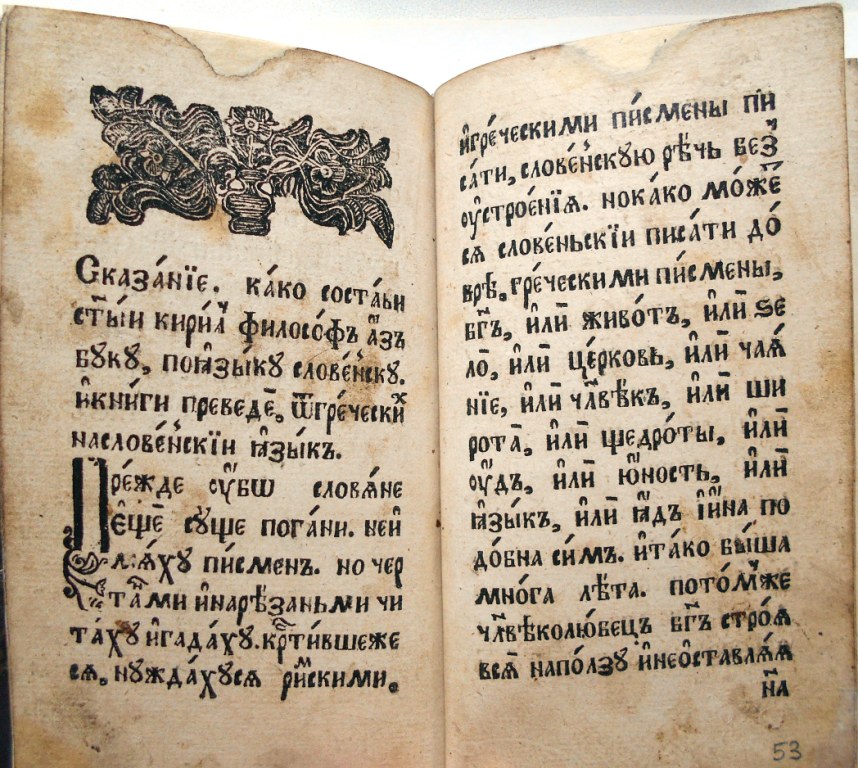 Сказа́нїе. ка́ко соста́ви
ст҃ы́и кири́лъ фило́софъ а҆́зъ
бꙋ́кꙋ, поꙗ҆зы́кꙋ слове́нскꙋ.
и҆кни́ги преведѐ, ѿгре́ческих
насло́ве́нскїи ꙗ҆зы́къ.
Пре́жде ᲂу҆́бѡ слова́не
є҆щѐ сꙋ́ще пога́ни. неи҆
мѧ́хꙋ пи́сменъ. но чер
та́ми и҆нарѣ́заньми чи
та́хꙋ и҆гада́хꙋ. крⷭ҇ти́вшеже
сѧ, нꙋжда́хꙋсѧ ри́мскими,
и҆гре́ческими пи́смены пи
са́ти, слове́нскꙋю рѣ́чь без̾
ᲂу҆строе́нїѧ. нока́ко мо́же
сѧ слове́ньскїи писа́ти до́
брѣ, гре́ческими пи́смены,
бг҃ъ, и҆лѝ живо́тъ, и҆лѝ ѕе
ло̀, и҆лѝ це́рковь, и҆лѝ ча́ѧ
нїе, и҆лѝ чл҃вѣ́къ, и҆лѝ ши
рота̀, и҆лѝ щедро́ты, и҆лѝ
ᲂу҆́дъ, и҆лѝ ю҆́ность, и҆лѝ
ꙗ҆зы́къ, и҆лѝ ꙗ҆́дъ і҆и҆́на по
до́бна си́мъ. и҆та́ко бы́ша
мно́га лѣ́та. пото́мже
чл҃вѣколю́бецъ бг҃ъ стро́ѧ
всѧ̀ напо́лзꙋ и҆неѡ҆ставлѧ́ѧ
на
53